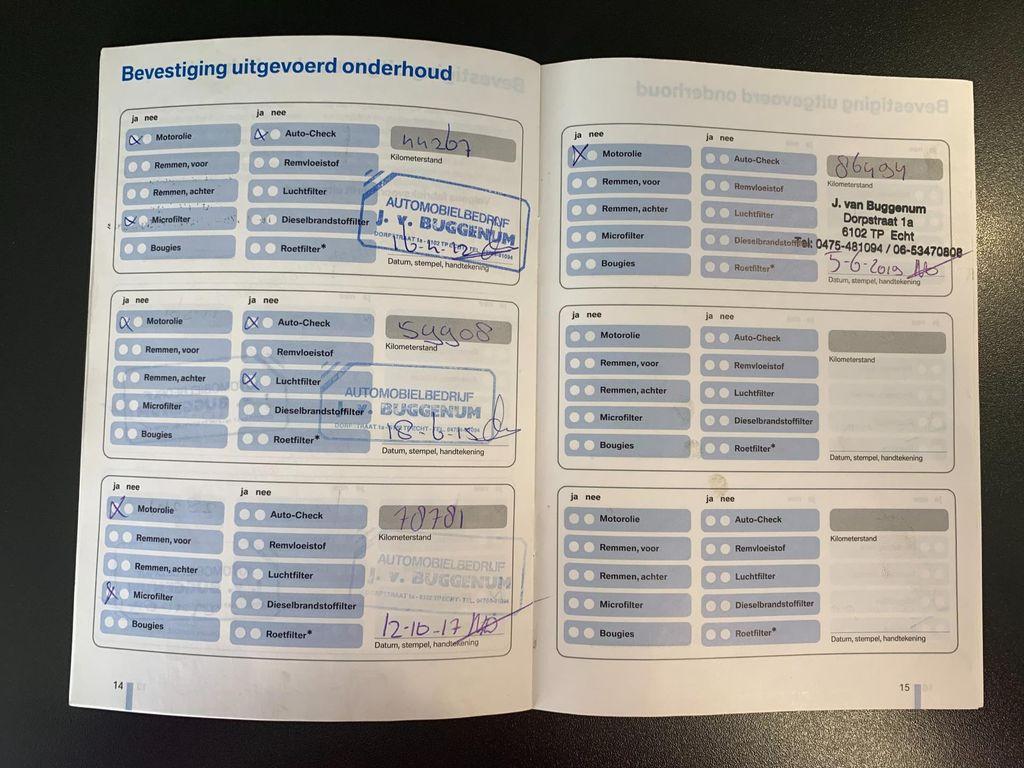 Bevestiging uitgevoerd onderhoud
ja nee
ja nee
Motorolie
Auto-Check
44267
Kilometerstand
Remmen, voor
Remvloeistof
Remmen, achter
Luchtfilter
AUTOMOBIELBEDRIJF
J. v. BUGGENUM
Microfilter
Dieselbrandstoffilter
Bougies
Roetfilter*
Datum, stempel, handtekening
ja nee
ja nee
Motorolie
Auto-Check
59908
Kilometerstand
Remmen, voor
Remvloeistof
Remmen, achter
Luchtfilter
AUTOMOBIELBEDRIJF
J. v. BUGGENUM
Microfilter
Dieselbrandstoffilter
Bougies
Roetfilter*
Datum, stempel, handtekening
ja nee
ja nee
Motorolie
Auto-Check
78781
Kilometerstand
Remmen, voor
Remvloeistof
AUTOMOBIELBEDRIJF
J. v. BUGGENUM
Remmen, achter
Luchtfilter
Microfilter
Dieselbrandstoffilter
Bougies
Roetfilter*
12-10-17
Datum, stempel, handtekening
14
ja nee
ja nee
Motorolie
Auto-Check
86494
Kilometerstand
Remmen, voor
Remvloeistof
Remmen, achter
Luchtfilter
J. van Buggenum
Dorpstraat 1a
6102 TP Echt
Tel: 0475-481094 / 06-53470808
Microfilter
Dieselbrandstoffilter
Bougies
Roetfilter*
5-6-2019
Datum, stempel, handtekening
ja nee
ja nee
Motorolie
Auto-Check
Kilometerstand
Remmen, voor
Remvloeistof
Remmen, achter
Luchtfilter
Microfilter
Dieselbrandstoffilter
Bougies
Roetfilter*
Datum, stempel, handtekening
ja nee
ja nee
Motorolie
Auto-Check
Kilometerstand
Remmen, voor
Remvloeistof
Remmen, achter
Luchtfilter
Microfilter
Dieselbrandstoffilter
Bougies
Roetfilter*
Datum, stempel, handtekening
15